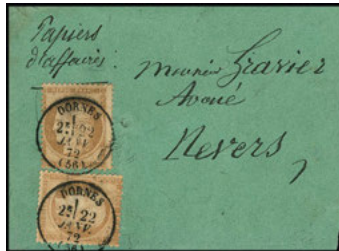 Papiers
d'affaires:
Monsieur Gravier
Avoué
Nevers,
DORNES
2E/22
JANV.
72
(56)
DORNES
2E/22
JANV.
72
(56)